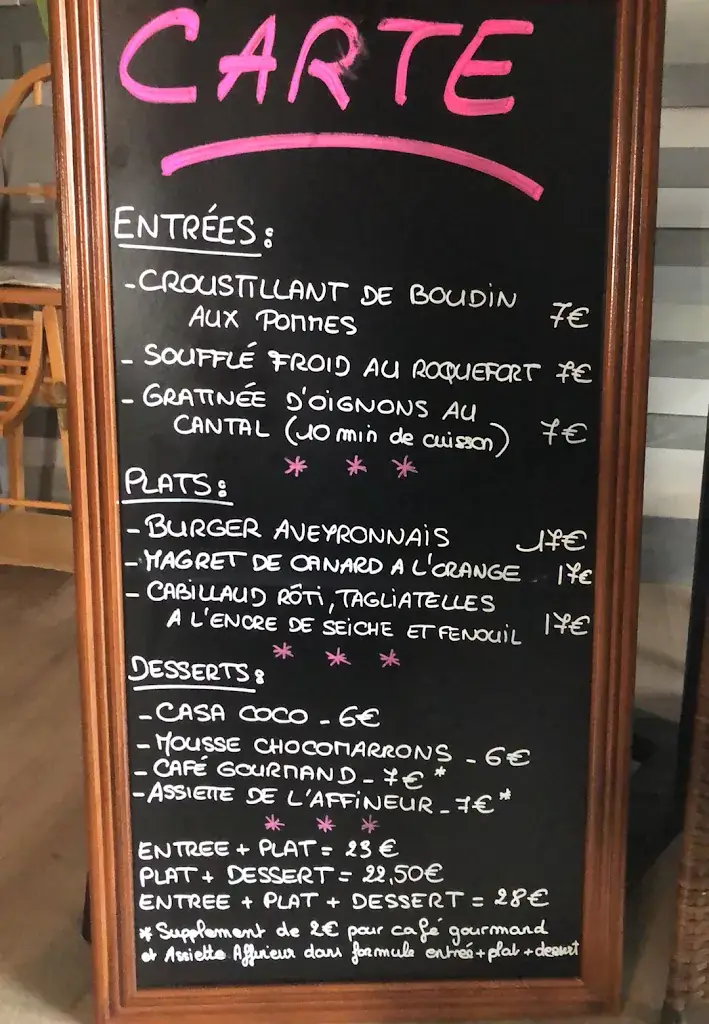 CARTE
ENTRÉES :
- CROUSTILLANT DE BOUDIN
AUX POMMES 7€
- SOUFFLÉ FROID AU ROQUEFORT 7€
- GRATINÉE D'OIGNONS AU
CANTAL (10 min de cuisson) 7€
* * *
PLATS :
- BURGER AVEYRONNAIS 17€
- MAGRET DE CANARD A L'ORANGE 17€
- CABILLAUD RÔTI, TAGLIATELLES
A L'ENCRE DE SEICHE ET FENOUIL 17€
* * *
DESSERTS :
- CASA COCO - 6€
- MOUSSE CHOCOMARRONS - 6€
- CAFÉ GOURMAND - 7€*
- ASSIETTE DE L'AFFINEUR - 7€*
* * *
ENTREE + PLAT = 23€
PLAT + DESSERT = 22,50€
ENTREE + PLAT + DESSERT = 28€
* Supplement de 2€ pour café gourmand
et Assiette Affineur dans formule entrée + plat + dessert